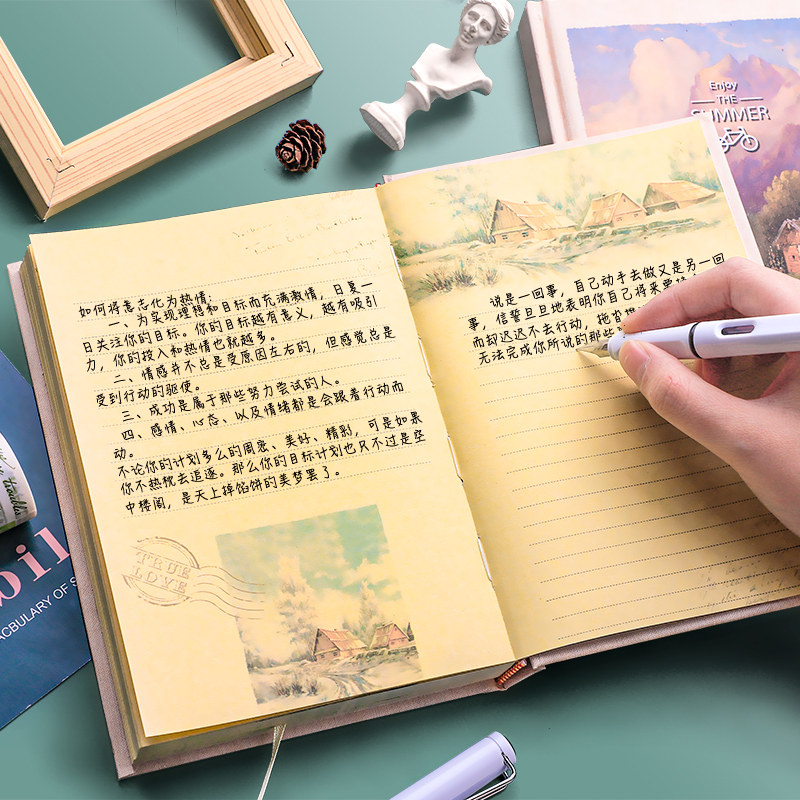 Enjoy
THE
SUMMER
如何将意志化为热情:
一、为实现理想和目标而充满激情，日夏一
日关注你的目标。你的目标越有意义，越有吸引
力，你的投入和热情也就越多。
二、情感并不总是受原因左右的，但感觉总是
受到行动的驱使。
三、成功是属于那些努力尝试的人。
四、感情、心态、以及情绪都是会跟着行动而
动。
不论你的计划多么的周密、美好、精彩，可是如果
你不热忱去追逐。那么你的目标计划也只不过是空
中楼阁，是天上掉馅饼的美梦罢了。
说是一回事，自己动手去做又是另一回
事，信誓旦旦地表明你自己将来要
而却迟迟不去行动，拖
无法完成你所说的那些
TRUE
LOVE
troubles
bil
ACBULARY OF S